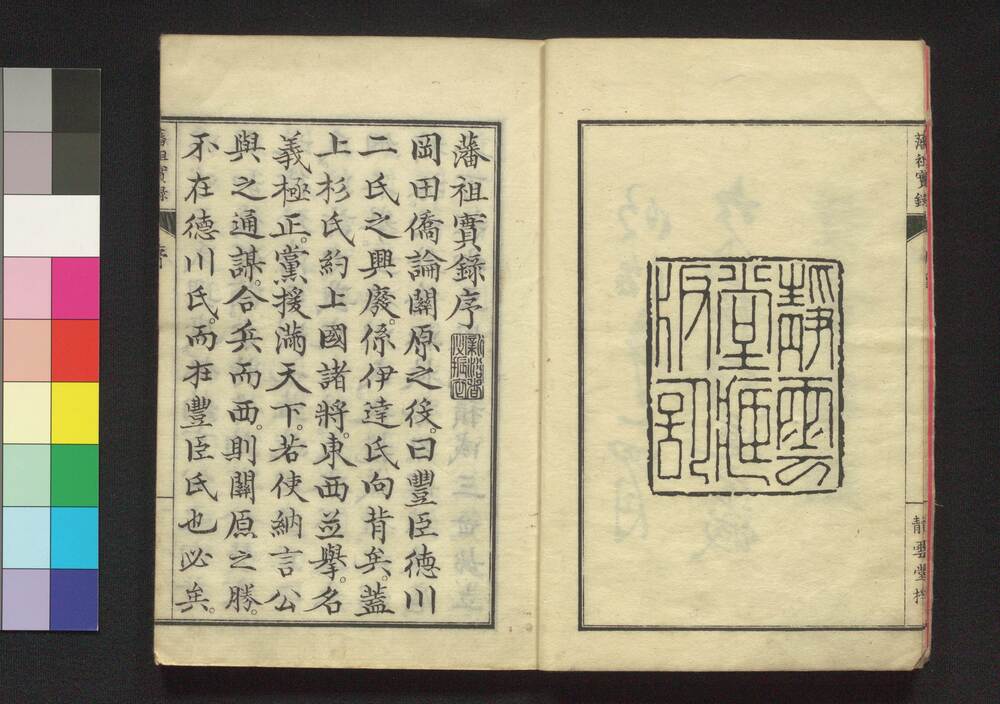 藩祖實錄
靜雲堂
靜雲
堂
藩祖實錄序
岡田僑論關原之役。曰豐臣德川
二氏之興廢。係伊達氏向背矣。蓋
上杉氏約上國諸將。東西並擧。名
義極正。黨援滿天下。若使納言公
與之通謀。合兵而西。則關原之勝。
不在德川氏。而在豐臣氏也必矣。
藩祖實錄
序